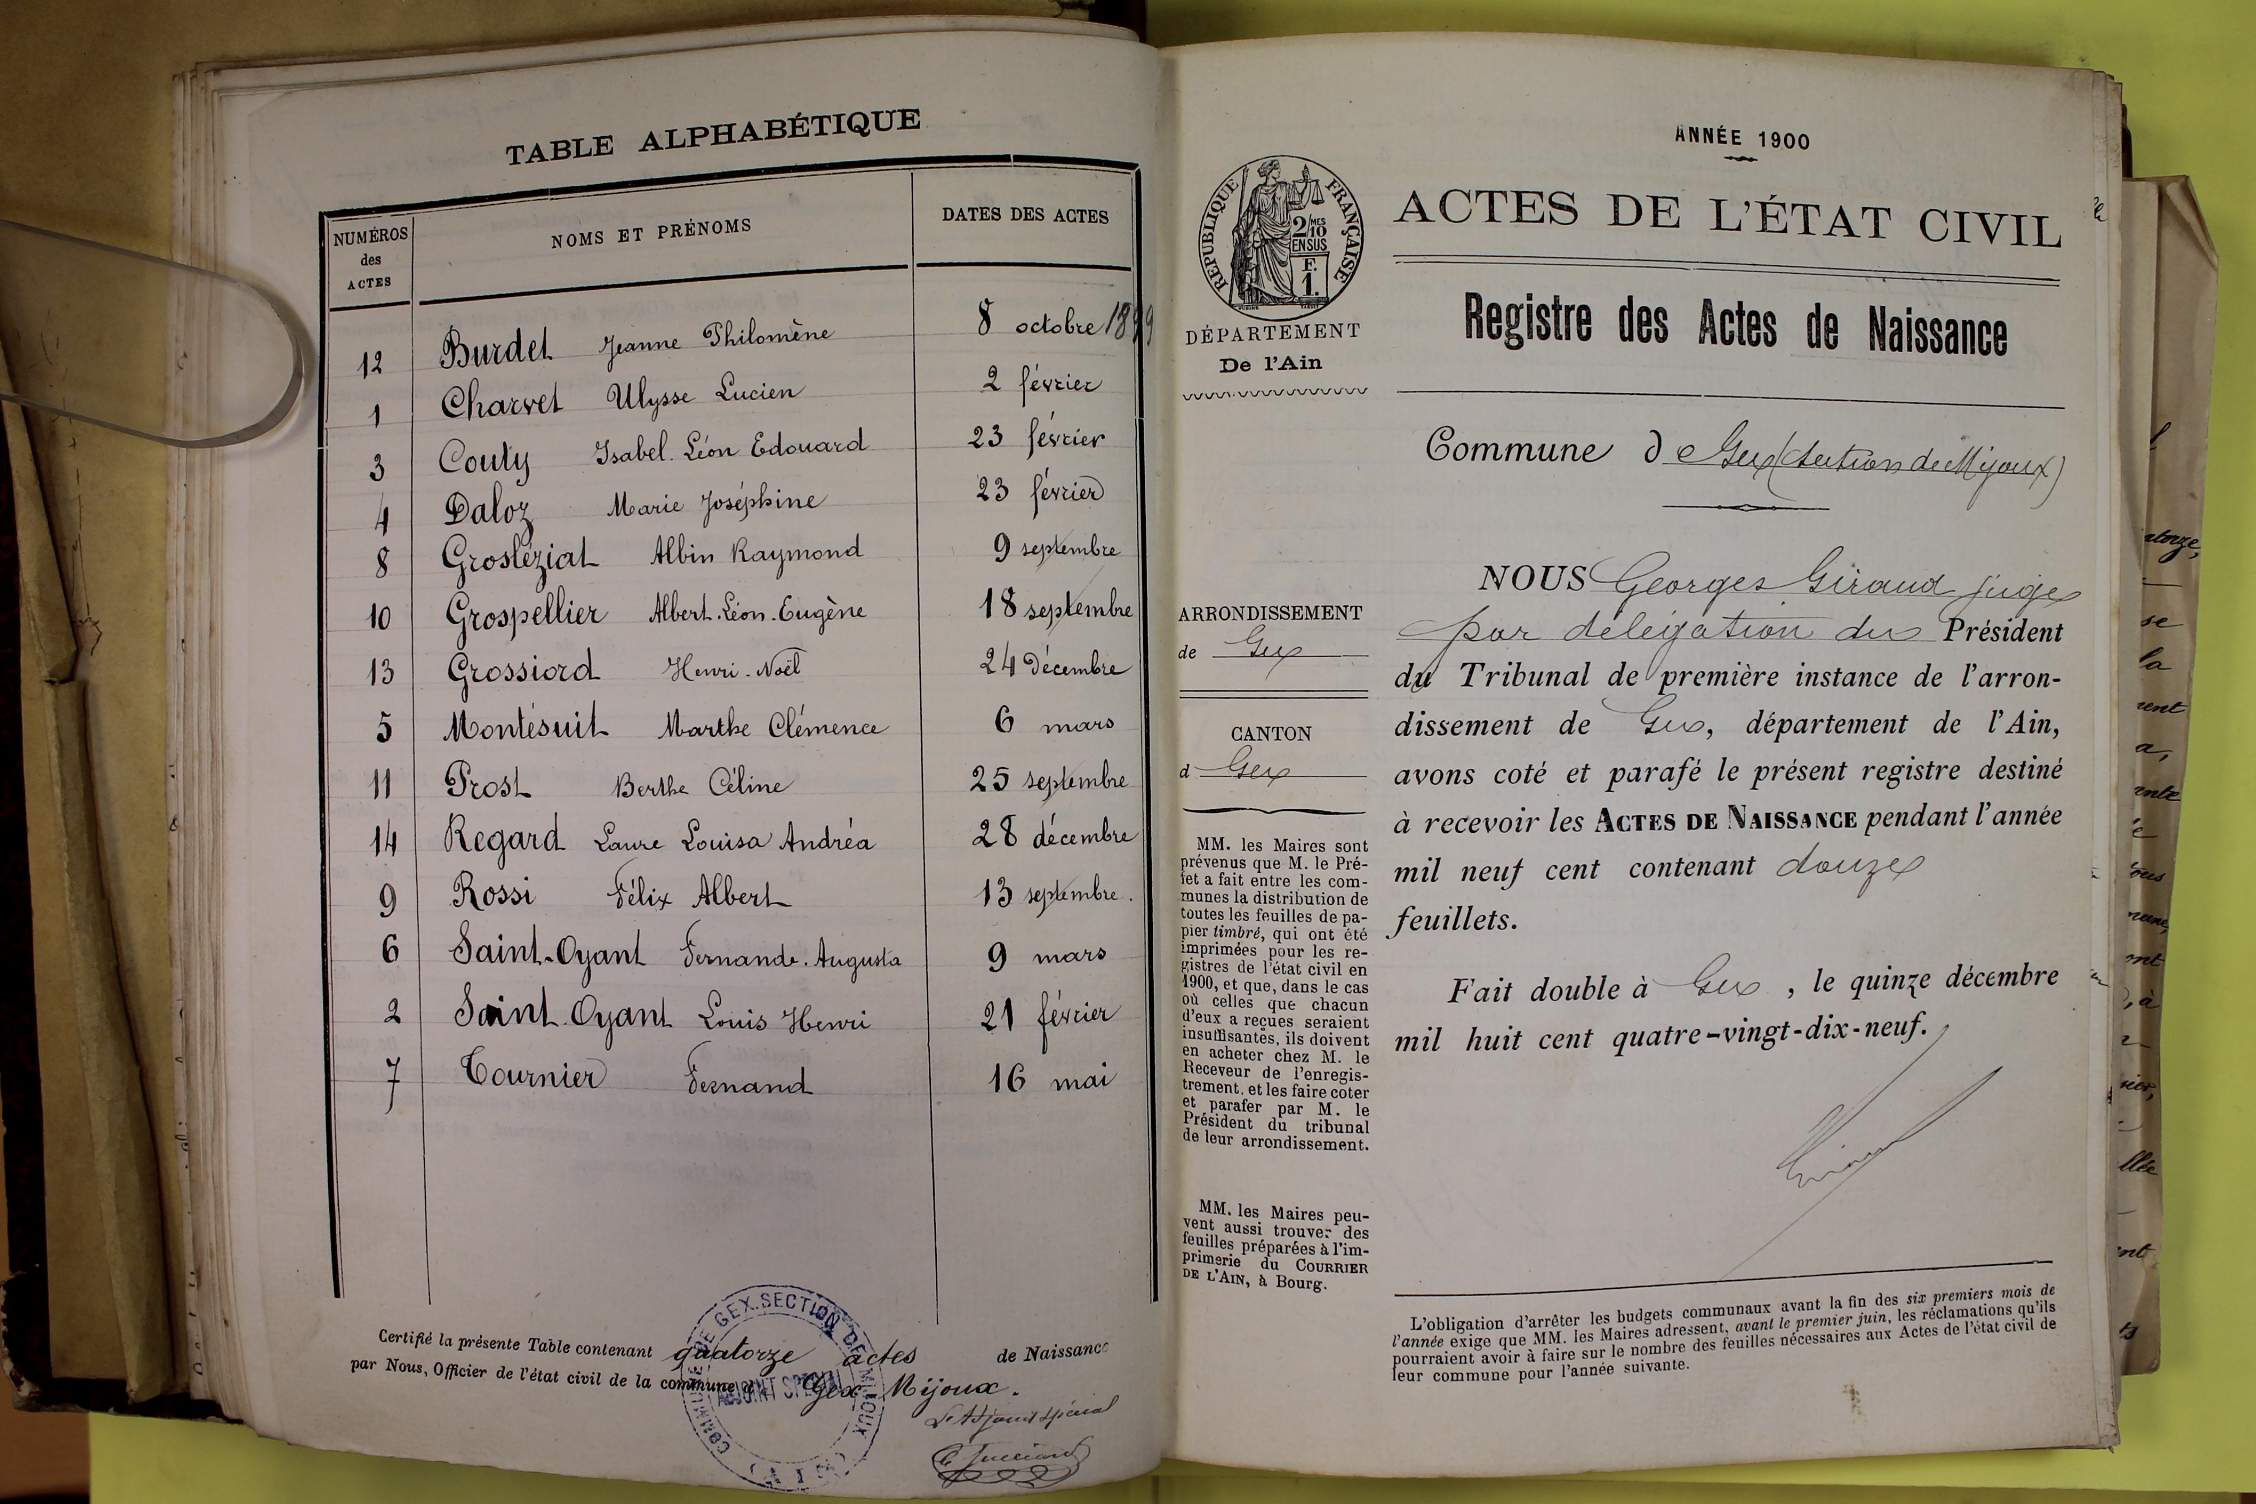 TABLE ALPHABÉTIQUE
NUMÉROS
des
ACTES
NOMS ET PRÉNOMS
DATES DES ACTES
12 Burdet Jeanne Philomène 8 octobre 1899
1 Charvet Ulysse Lucien 2 février
3 Couty Isabel Léon Edouard 23 février
4 Daloz Marie Joséphine 23 février
8 Grosléziat Albin Raymond 9 septembre
10 Grospellier Albert Léon Eugène 18 septembre
13 Grossiord Henri Noël 24 Décembre
5 Montésuit Marthe Clémence 6 mars
11 Prost Berthe Céline 25 septembre
14 Regard Laure Louisa Andréa 28 décembre
9 Rossi Félix Albert 13 septembre.
6 Saint-Oyant Fernande Augusta 9 mars
2 Saint-Oyant Louis Henri 21 février
7 Tournier Fernand 16 mai
Certifié la présente Table contenant quatorze actes de Naissance
par Nous, Officier de l'état civil de la commune d Gex Mijoux.
COMMUNE DE GEX. SECTION DE MIJOUX
ADJOINT SPÉCIAL
(AIN)
L'Adjoint spécial
ANNÉE 1900
RÉPUBLIQUE FRANÇAISE
2/10
MES
EN SUS
F.
1.
DÉPARTEMENT
De l'Ain
ACTES DE L'ÉTAT CIVIL
Registre des Actes de Naissance
Commune de Gex (Section de Mijoux)
ARRONDISSEMENT
de Gex
CANTON
d Gex
MM. les Maires sont
prévenus que M. le Pré-
fet a fait entre les com-
munes la distribution de
toutes les feuilles de pa-
pier timbré, qui ont été
imprimées pour les re-
gistres de l'état civil en
1900, et que, dans le cas
où celles que chacun
d'eux a reçues seraient
insuffisantes, ils doivent
en acheter chez M. le
Receveur de l'enregis-
trement, et les faire coter
et parafer par M. le
Président du tribunal
de leur arrondissement.
MM. les Maires peu-
vent aussi trouver des
feuilles préparées à l'im-
primerie du COURRIER
DE L'AIN, à Bourg.
NOUS Georges Giraud juge
par délégation du Président
du Tribunal de première instance de l'arron-
dissement de Gex, département de l'Ain,
avons coté et parafé le présent registre destiné
à recevoir les ACTES DE NAISSANCE pendant l'année
mil neuf cent contenant douze
feuillets.
Fait double à Gex, le quinze décembre
mil huit cent quatre-vingt-dix-neuf.
Giraud
L'obligation d'arrêter les budgets communaux avant la fin des six premiers mois de
l'année exige que MM. les Maires adressent, avant le premier juin, les réclamations qu'ils
pourraient avoir à faire sur le nombre des feuilles nécessaires aux Actes de l'état civil de
leur commune pour l'année suivante.